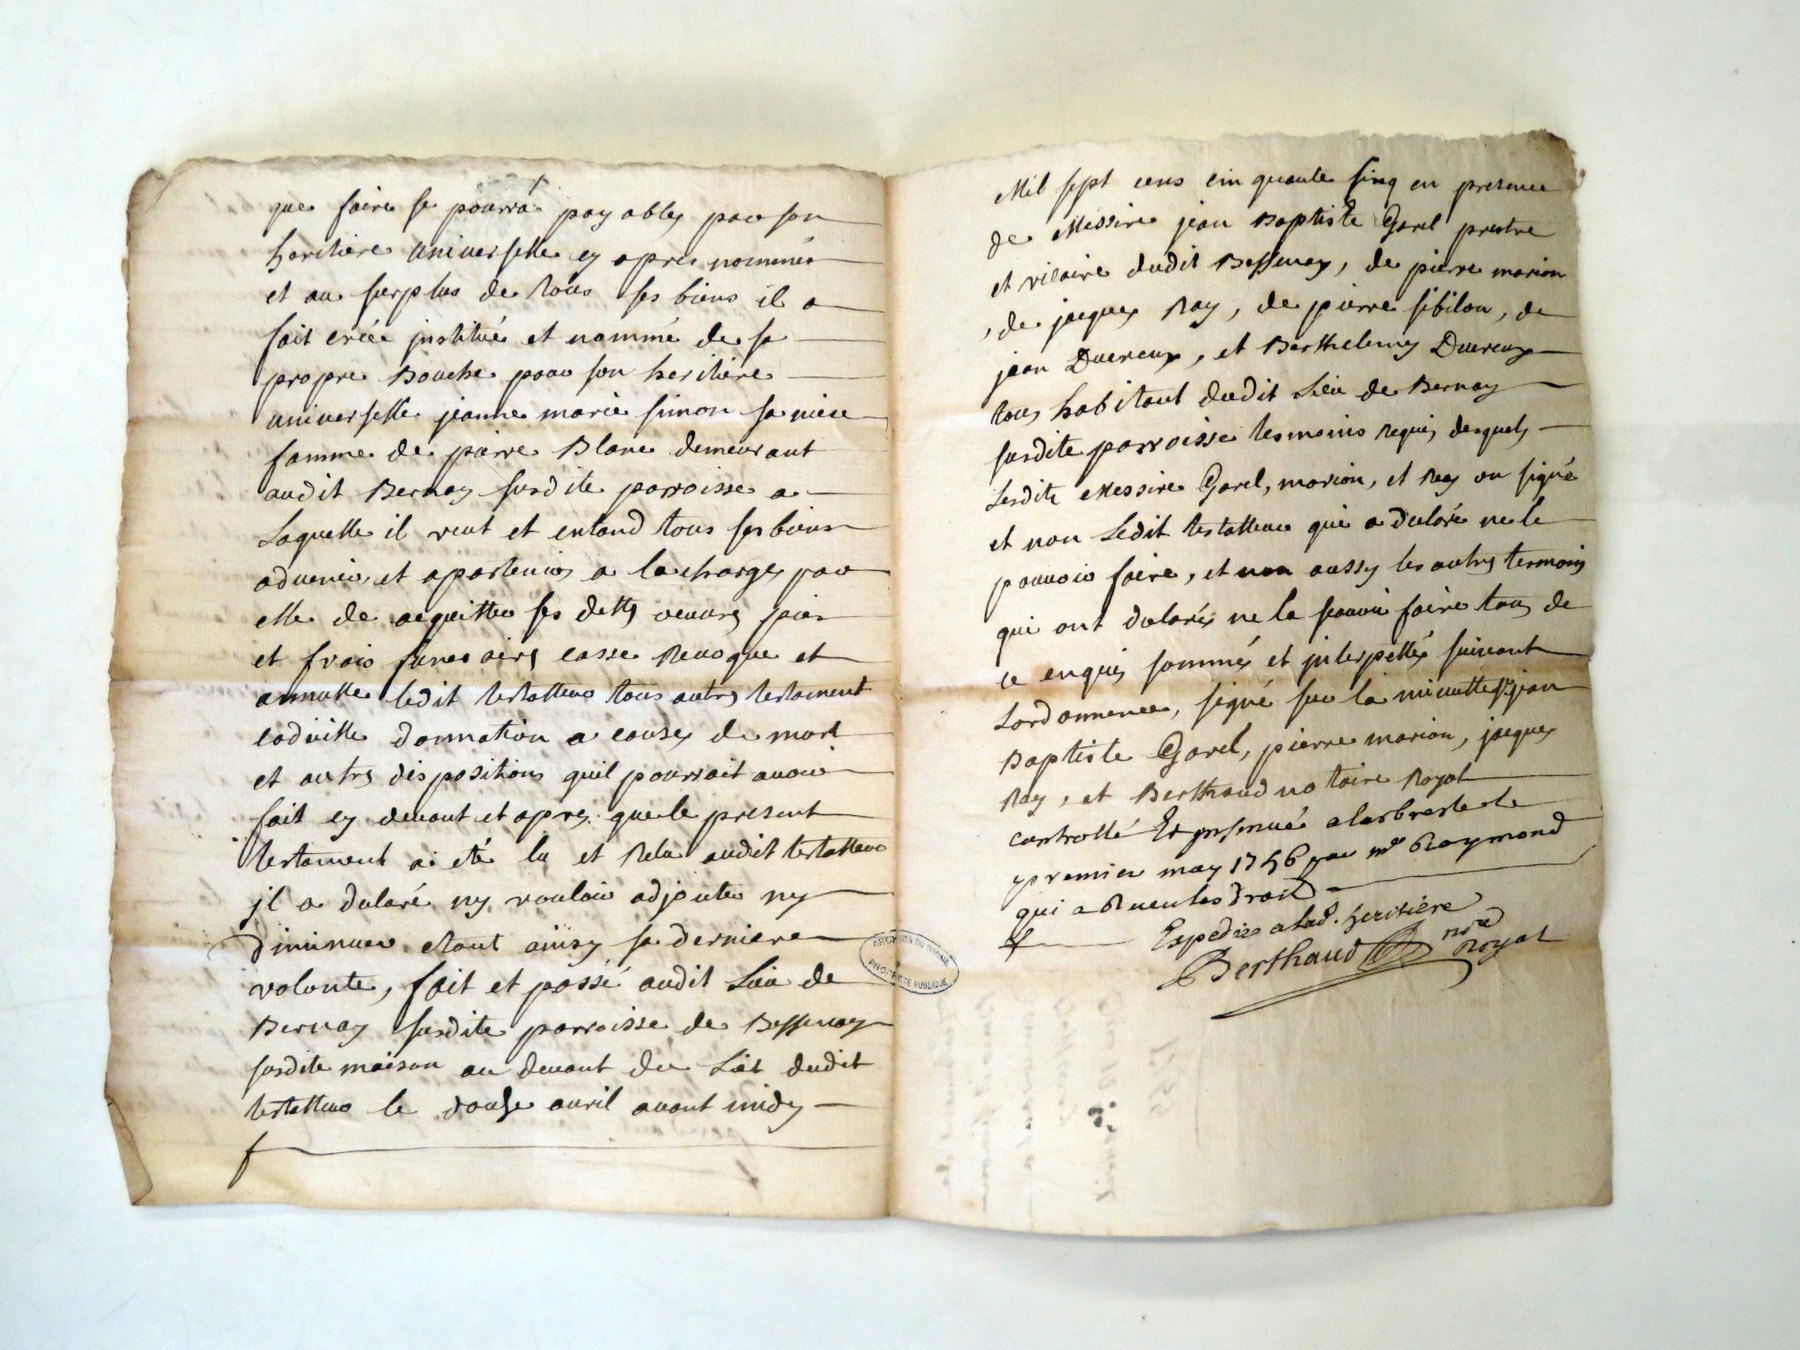 que faire se pourra payables par son
heritiere universelle cy apres nommée
et au surplus de tous ses biens il a
fait créée jnstitué et nommé de sa
propre Bouche pour son heritiere
universelle jeanne marie simon sa niece
famme de pierre Blanc demeurant
audit Bernay susdite parroisse a
Laquelle il veut et entand tous ses biens
advenir et apartenir a la charges par
elle de acquitter ses dettes
et frais funeraires casse Revoque et
annulle ledit testatteur tous autres testament
codicille donnation a causes de mort
et autres dispositions quil pourrait avoir
fait cy devant et apres que le present
testament a été lu et Relu audit testatteur
jl a declaré ny vouloir adjouter ny
diminuer etant ainsy sa derniere
volonte, fait et passé audit Lieu de
Bernay susdite parroisse de Bessenay
susdite maison au devant du Lict dudit
testatteur le douze avril avant midy
Mil sept cens cinquante sinq en presence
de Messire jean Baptiste Garel prestre
et vicaire dudit Bessenay, de pierre marion
, de jacques Ray, de pierre sibilon, de
jean Ducreux, et Berthelemy Ducreux
tous habitant dudit Lieu de Bernay
susdite parroisse tesmoins Requis desquels
Lesdits Messire Garel, marion, et Ray on signé
et non Ledit testatteur qui a declaré ne le
pouvoir faire, et non aussy les autres tesmoins
qui ont declarés ne le scavoir faire tous de
ce enquis sommés et jnterpellés suivant
Lordonnence, signé sur la minutte jean
Baptiste Garel, pierre marion, jacques
Ray, et Berthaud notaire Royal
controllé Et jnsinué a larbresle le
premier may 1756 par mr Raymond
qui a Ruent les droit
Expediee a lad. heritiere
Berthaud nre Royal
ARCHIVES DU RHONE
PROPRIETE PUBLIQUE